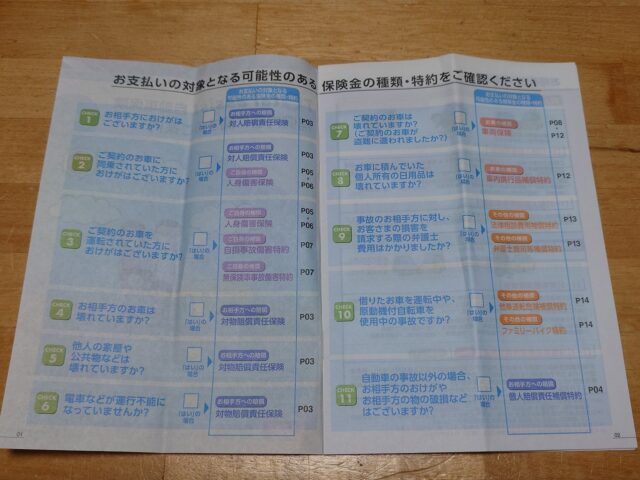 お支払いの対象となる可能性のある保険金の種類・特約をご確認ください
お支払いの対象となる
可能性のある保険金の種類・特約
CHECK
1
お相手方におけがは
ございますか?
「はい」の
場合
お相手方への賠償
対人賠償責任保険
P03
CHECK
2
ご契約のお車に
同乗されていた方に
おけがはございますか?
「はい」の
場合
お相手方への賠償
対人賠償責任保険
P03
ご自身の補償
人身傷害保険
P05
P06
CHECK
3
ご契約のお車を
運転されていた方に
おけがはございますか?
「はい」の
場合
ご自身の補償
人身傷害保険
P05
P06
ご自身の補償
自損事故傷害特約
P07
ご自身の補償
無保険車事故傷害特約
P07
CHECK
4
お相手方のお車は
壊れていますか?
「はい」の
場合
お相手方への賠償
対物賠償責任保険
P03
CHECK
5
他人の家屋や
公共物などは
壊れていますか?
「はい」の
場合
お相手方への賠償
対物賠償責任保険
P03
CHECK
6
電車などが運行不能に
なっていませんか?
「はい」の
場合
お相手方への賠償
対物賠償責任保険
P03
01
お支払いの対象となる
可能性のある保険金の種類・特約
CHECK
7
ご契約のお車は
壊れていますか?
(ご契約のお車が
盗難に遭われましたか?)
「はい」の
場合
お車の補償
車両保険
P08
P12
CHECK
8
お車に積んでいた
個人所有の日用品は
壊れていますか?
「はい」の
場合
お車の補償
車内携行品補償特約
P12
CHECK
9
事故のお相手方に対し、
お客さまの損害を
請求する際の弁護士
費用はかかりましたか?
「はい」の
場合
その他の補償
法律相談費用補償特約
P13
その他の補償
弁護士費用等補償特約
P13
CHECK
10
借りたお車を運転中や、
原動機付自転車を
使用中の事故ですか?
「はい」の
場合
その他の補償
他車運転危険補償特約
P14
その他の補償
ファミリーバイク特約
P14
CHECK
11
自動車の事故以外の場合、
お相手方のおけがや
お相手方の物の破損など
はございますか?
「はい」の
場合
お相手方への賠償
個人賠償責任補償特約
P04
02